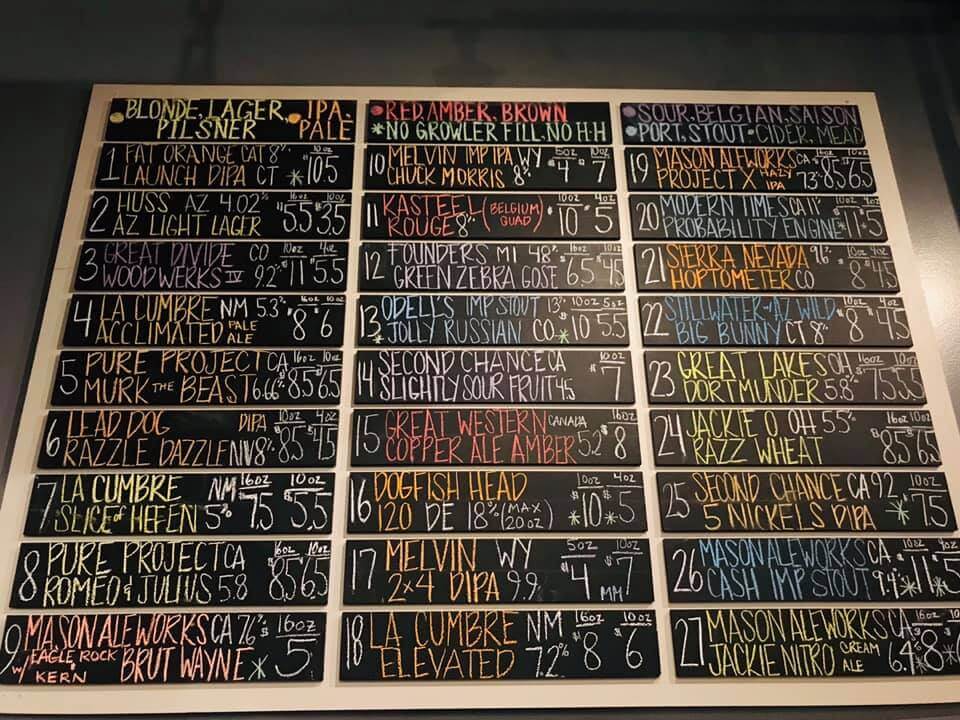 BLONDE, LAGER, PILSNER
IPA, PALE
RED, AMBER, BROWN
*NO GROWLER FILL, NO H.H
SOUR, BELGIAN, SAISON
PORT, STOUT • CIDER, MEAD
1 FAT ORANGE CAT 8% 10oz
LAUNCH DIPA CT * 10.5
2 HUSS AZ 4.02% 16oz 10oz
AZ LIGHT LAGER $5.5 3.5
3 GREAT DIVIDE CO 10oz 4oz
WOODWERKS IV 9.2% $11 5.5
4 LA CUMBRE NM 5.3% 16oz 10oz
ACCLIMATED PALE ALE $8 6
5 PURE PROJECT CA 16oz 10oz
MURK THE BEAST 6.66% 8.5 6.5
6 LEAD DOG DIPA 10oz 4oz
RAZZLE DAZZLE NV 8% $8.5 $4.5
7 LA CUMBRE NM 16oz 10oz
SLICE of HEFEN 5% 7.5 5.5
8 PURE PROJECT CA 16oz 10oz
ROMEO & JULIUS 5.8 8.5 6.5
9 MASON ALEWORKS CA 7.6% $ 16oz
W/ EAGLE ROCK KERN BRUT WAYNE * 5
10 MELVIN IMP IPA WY 5oz 10oz
CHUCK MORRIS 8% $4 $7
11 KASTEEL (BELGIUM QUAD) 10oz 4oz
ROUGE 8% $10 $5
12 FOUNDERS MI 4.8% 16oz 10oz
GREEN ZEBRA GOSE $6.5 $4.5
13 ODELL'S IMP STOUT 13% 10oz 5oz
JOLLY RUSSIAN CO * 10 5.5
14 SECOND CHANCE CA 10oz
SLIGHTLY SOUR FRUIT 4.5 $7
15 GREAT WESTERN CANADA 16oz
COPPER ALE AMBER 5.2% $8
16 DOGFISH HEAD 10oz 4oz
120 DE 18% (MAX 20oz) *$10 *$5
17 MELVIN WY 5oz 10oz
2x4 DIPA 9.9% $4 $7 MM
18 LA CUMBRE NM 16oz 10oz
ELEVATED 7.2% $8 $6
19 MASON ALEWORKS CA 16oz 10oz
PROJECT X HAZY IPA 7.3% 8.5 6.5
20 MODERN TIMES CA 10oz 4oz
PROBABILITY ENGINE $11 $5
21 SIERRA NEVADA 9.6% 10oz 4oz
HOPTOMETER CO $8 $4.5
22 STILLWATER-AZ WILD 10oz 4oz
BIG BUNNY CT 8% $8 $4.5
23 GREAT LAKES OH 16oz 10oz
DORTMUNDER 5.8% 7.5 5.5
24 JACKIE O OH 5.5% 16oz 10oz
RAZZ WHEAT $8.5 $6.5
25 SECOND CHANCE CA 9.2 10oz
5 NICKELS DIPA * $7.5
26 MASON ALEWORKS CA 10oz 4oz
CASH IMP STOUT 9.4% *$11 *$5
27 MASON ALEWORKS CA 16oz 10oz
JACKIE NITRO CREAM ALE 6.4% $8